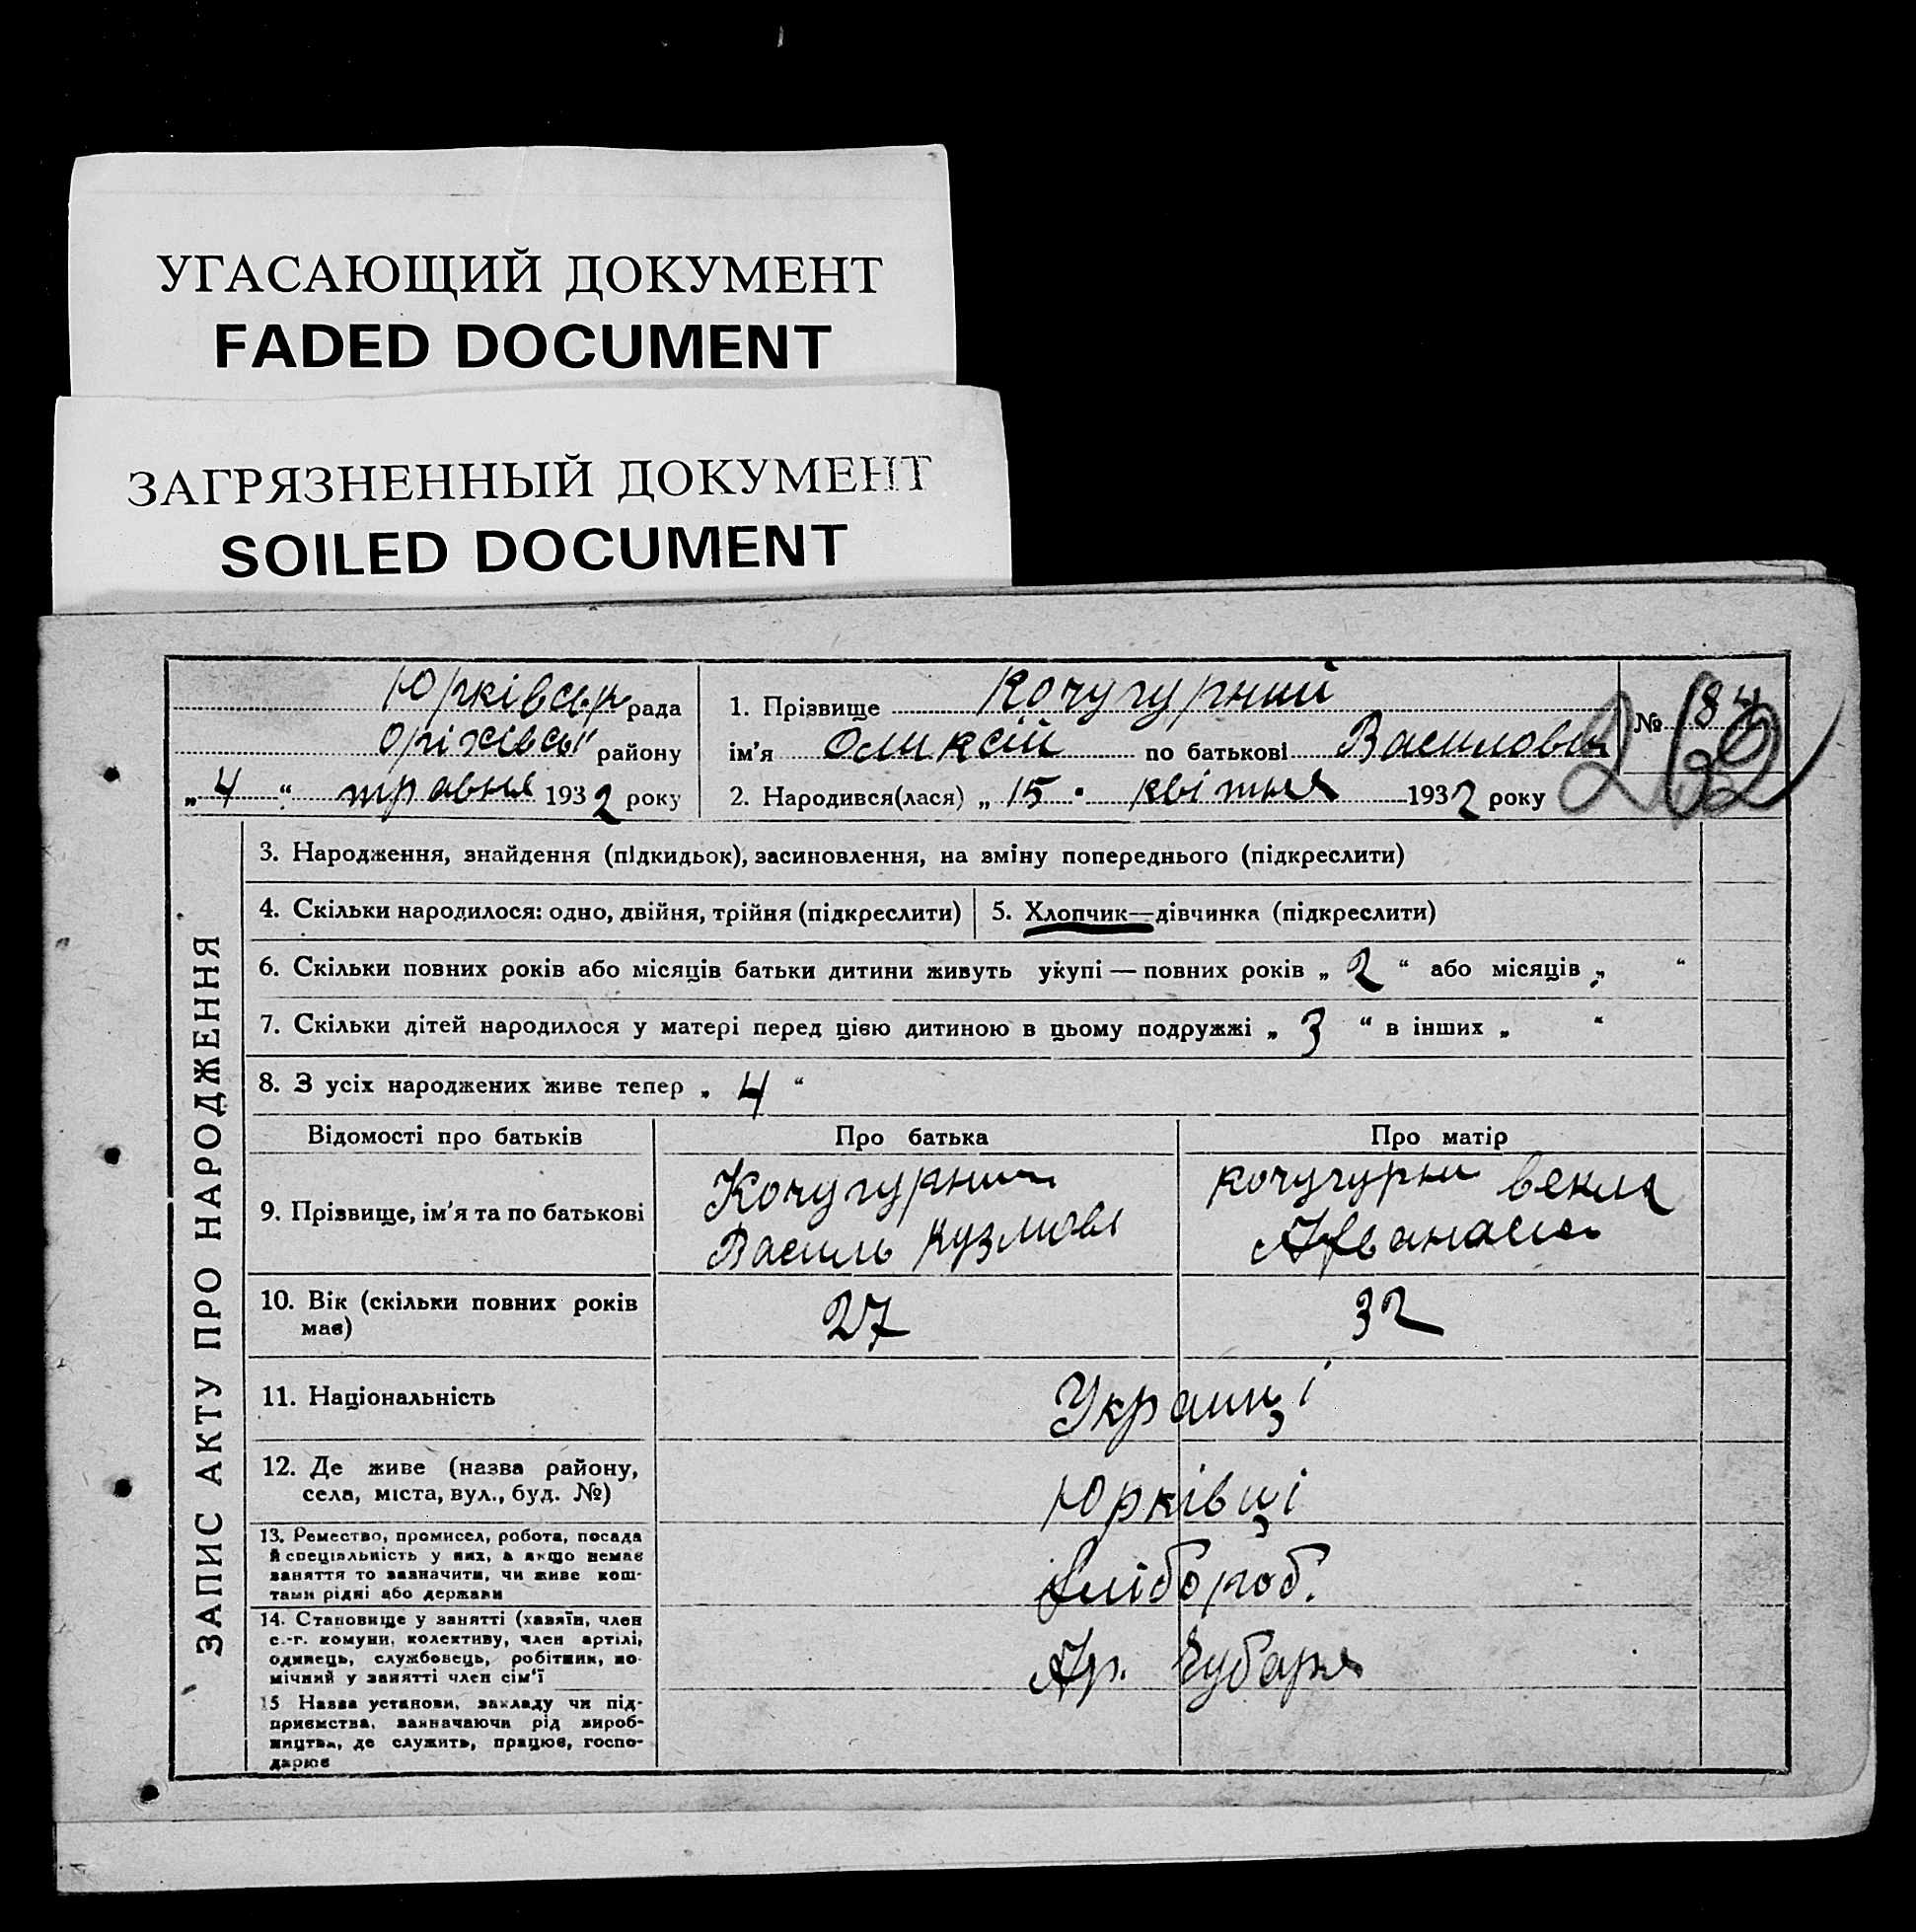 УГАСАЮЩИЙ ДОКУМЕНТ
FADED DOCUMENT
ЗАГРЯЗНЕННЫЙ ДОКУМЕНТ
SOILED DOCUMENT
Юрківськ рада
Оріхівськ району
„ 4 “ травня 1932 року
1. Прізвище Кочугурний
ім'я Оликсій по батькові Василович
2. Народився(лася) „ 15 квітня 1932 року
№ 84
262
ЗАПИС АКТУ ПРО НАРОДЖЕННЯ
3. Народження, знайдення (підкидьок), засиновлення, на зміну попереднього (підкреслити)
4. Скільки народилося: одно, двійня, трійня (підкреслити)
5. Хлопчик—дівчинка (підкреслити)
6. Скільки повних років або місяців батьки дитини живуть укупі — повних років „ 2 “ або місяців „ “
7. Скільки дітей народилося у матері перед цією дитиною в цьому подружжі „ 3 “ в інших „ “
8. З усіх народжених живе тепер „ 4 “
Відомості про батьків Про батька Про матір
9. Прізвище, ім'я та по батькові
Кочугурний
Василь Кузмові
кочугурни векла
Афанасія
10. Вік (скільки повних років
має)
27 32
11. Національність Українці
12. Де живе (назва району,
села, міста, вул., буд. №)
Юрківці
13. Ремество, промисел, робота, посада
й спеціяльність у них, а якщо немає
заняття то зазначити, чи живе кош-
тами рідні або держави
хлібороб.
14. Становище у занятті (хазяїн, член
с.-г. комуни, колективу, член артілі,
одинець, службовець, робітник, по-
мічний у занятті член сім'ї
Ар. Чубаря
15 Назва установи, закладу чи під-
приємства, зазначаючи рід вироб-
ництва, де служить, працює, госпо-
дарює